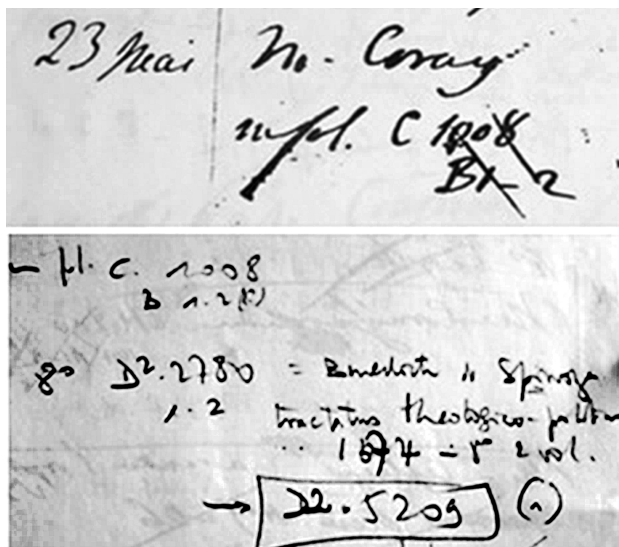 23 Mai M. Coray
in fol. C 1008
B 1-2
- fol. C. 1008
B 1.2
8º D².2780 = Benedicti Spinoza
1.2 tractatus theologico-politicus
.. 1674 - 2 vol.
→ D2.5209 (1)